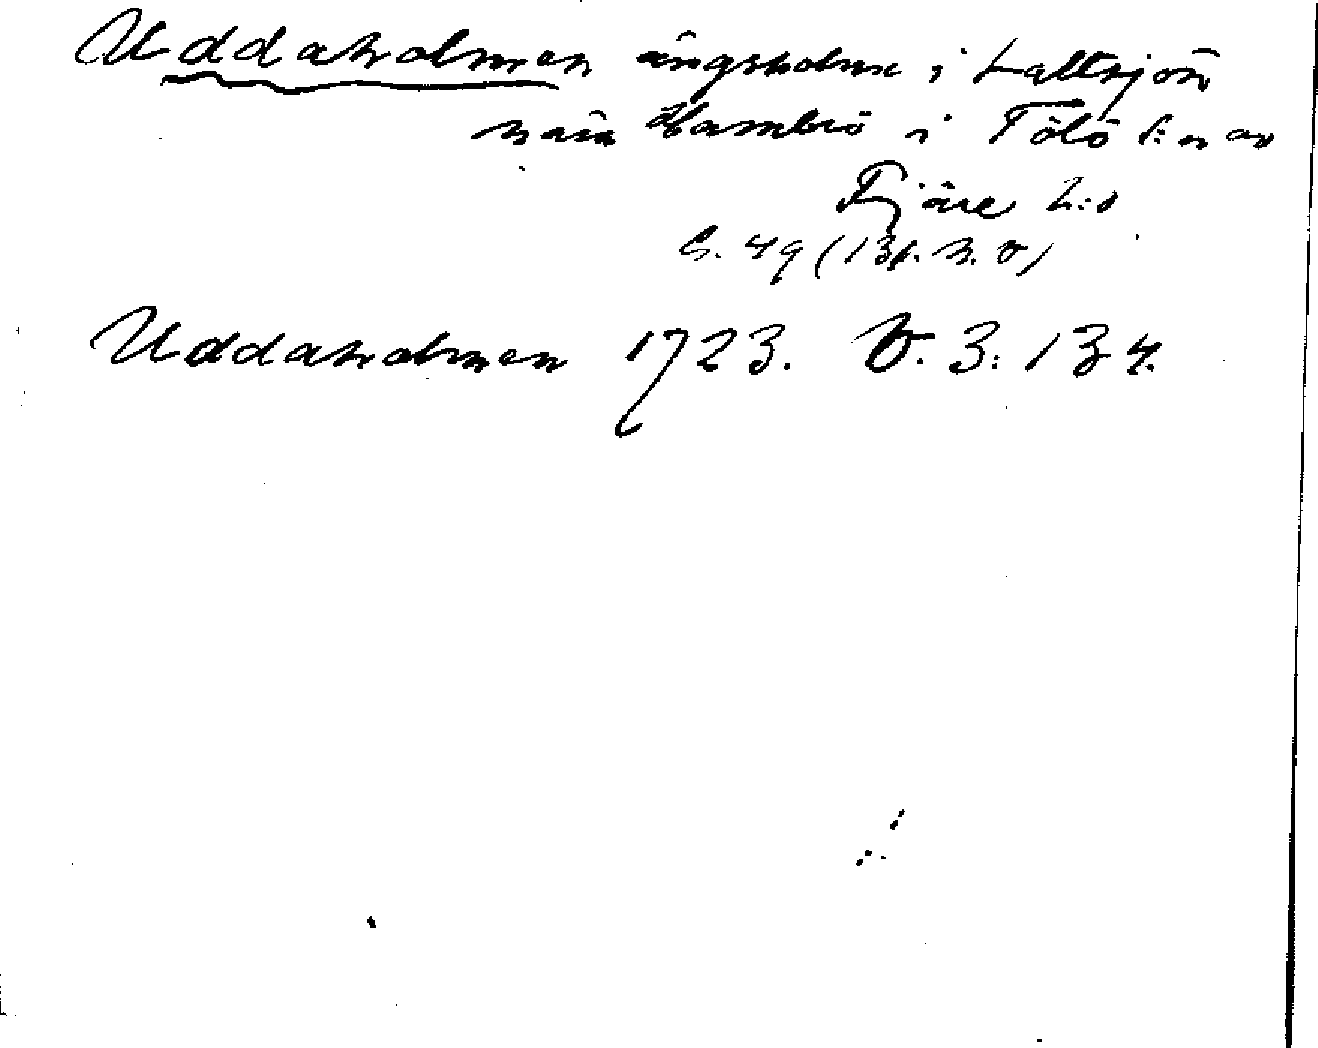 Uddaholmen ängsholme i Lallsjön
när Hambrö i Tölö s:n av
Fjäre h:d
G. 49 (131. B. V)
Uddaholmen 1723. V. 3: 134.